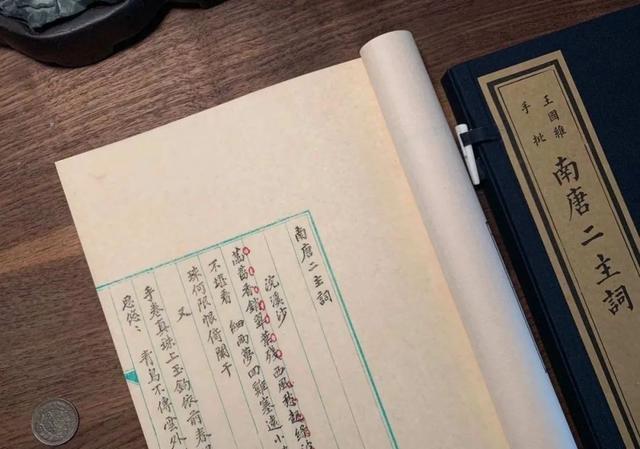 南唐二主詞
浣溪沙
菡萏香銷翠葉殘西風愁起緑
不堪看 細雨夢回雞塞遠小
珠何限恨倚闌干
又
手卷真珠上玉鈎依前春
思悠、 青鳥不傳雲外
王國維
手批
南唐二主詞